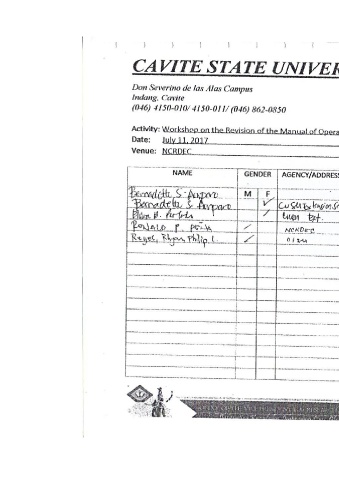 CAVITE STATE UNIVER
Don Severino de las Alas Campus
Indang, Cavite
(046) 4150-010/ 4150-011/ (046) 862-0850
Activity: Workshop on the Revision of the Manual of Opera
Date: July 11, 2017
Venue: NCRDEC
NAME GENDER AGENCY/ADDRESS
M F
Bernadette S. Amparo
Bernadette S. Amparo ✓
✓
Ronald P. ✓ NCRDEC
Reyes, Ryan Philip I. ✓